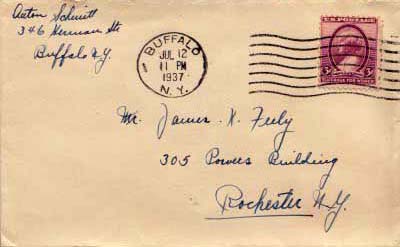 Anton Schmitt
346 Herman St.
Buffalo N.Y.
BUFFALO
JUL 12
11 PM
1937
N.Y.
U.S. POSTAGE
3¢ 3¢
Mr. James X. Feely
305 Powers Building
Rochester N.Y.